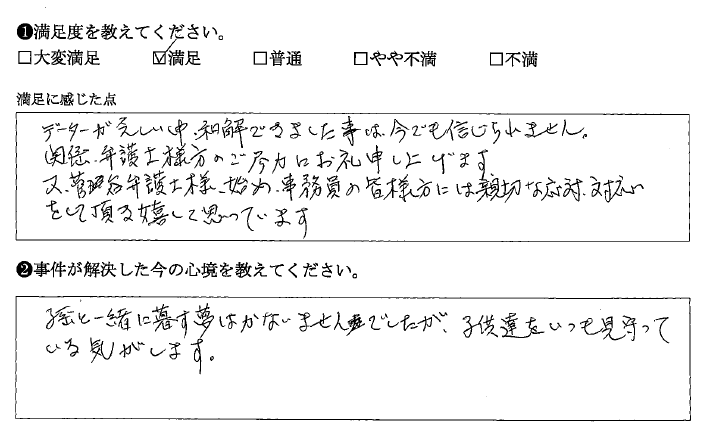 ❶満足度を教えてください。
□大変満足 ☑満足 □普通 □やや不満 □不満
満足に感じた点
データーが乏しい中、和解できました事は、今でも信じられません。
関係、弁護士様方のご尽力にお礼申し上げます
又、弁護士様、始め、事務員の皆様方には親切な応対、対応
をして頂き嬉しく思っています
❷事件が解決した今の心境を教えてください。
と一緒に暮す夢はかないませんでしたが、子供達をいつも見守って
いる気がします。